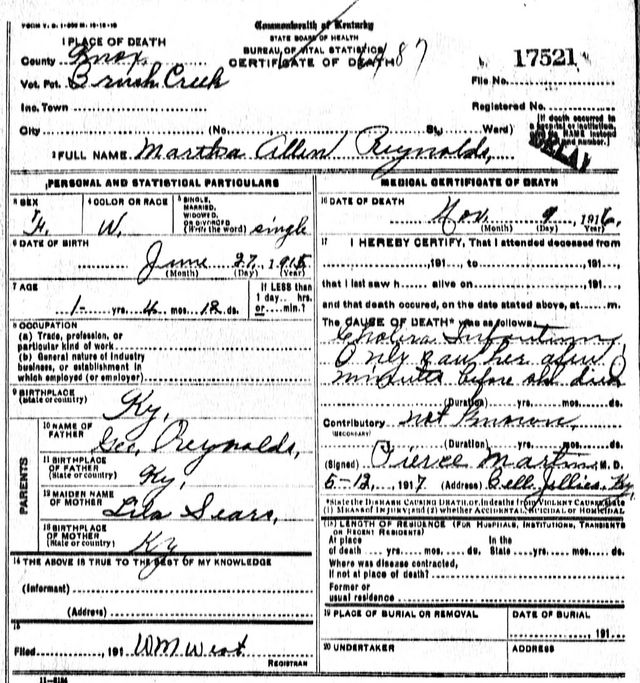 Commonwealth of Kentucky
STATE BOARD OF HEALTH
BUREAU OF VITAL STATISTICS
CERTIFICATE OF DEATH
487
17521
1 PLACE OF DEATH
County Knox,
Vot. Pct. Brush Creek
Inc. Town
City (No. St., Ward)
File No.
Registered No.
[If death occurred in a hospital or institution, give its NAME instead and number.]
2 FULL NAME Martha Allen Reynolds,
PERSONAL AND STATISTICAL PARTICULARS
3 SEX F.
4 COLOR OR RACE W.
5 SINGLE, MARRIED, WIDOWED OR DIVORCED (Write the word) single
6 DATE OF BIRTH June 27, 1915
(Month) (Day) (Year)
7 AGE 1 yrs. 4 mos. 12 ds.
If LESS than 1 day hrs. or min.?
8 OCCUPATION
(a) Trade, profession, or particular kind of work
(b) General nature of industry business, or establishment in which employed (or employer)
9 BIRTHPLACE (State or country) Ky,
PARENTS
10 NAME OF FATHER Geo, Reynolds,
11 BIRTHPLACE OF FATHER (State or country) Ky,
12 MAIDEN NAME OF MOTHER Lila Sears,
13 BIRTHPLACE OF MOTHER (State or country) Ky
14 THE ABOVE IS TRUE TO THE BEST OF MY KNOWLEDGE
(Informant)
(Address)
15
Filed 191 WM West
REGISTRAR
MEDICAL CERTIFICATE OF DEATH
16 DATE OF DEATH Nov. 9, 1916,
(Month) (Day) (Year)
17 I HEREBY CERTIFY, That I attended deceased from
191 to 191
that I last saw h alive on 191
and that death occured, on the date stated above, at m.
The CAUSE OF DEATH* was as follows:
Cholera Infantum
Only saw her a few
minutes before she died
(Duration) yrs. mos. ds.
Contributory not known,
(SECONDARY)
(Duration) yrs. mos. ds.
(Signed) Pierce Martin, M. D.
5-12, 1917 (Address) Ky.
*State the DISEASE CAUSING DEATH, or, in deaths from VIOLENT CAUSES state
(1) MEANS of INJURY; and (2) whether ACCIDENTAL, SUICIDAL or HOMICIDAL
18 LENGTH OF RESIDENCE (FOR HOSPITALS, INSTITUTIONS, TRANSIENTS OR RECENT RESIDENTS)
At place of death yrs. mos. ds.
In the State yrs. mos. ds.
Where was disease contracted, if not at place of death?
Former or usual residence
19 PLACE OF BURIAL OR REMOVAL
DATE OF BURIAL
191
20 UNDERTAKER
ADDRESS
11-3184